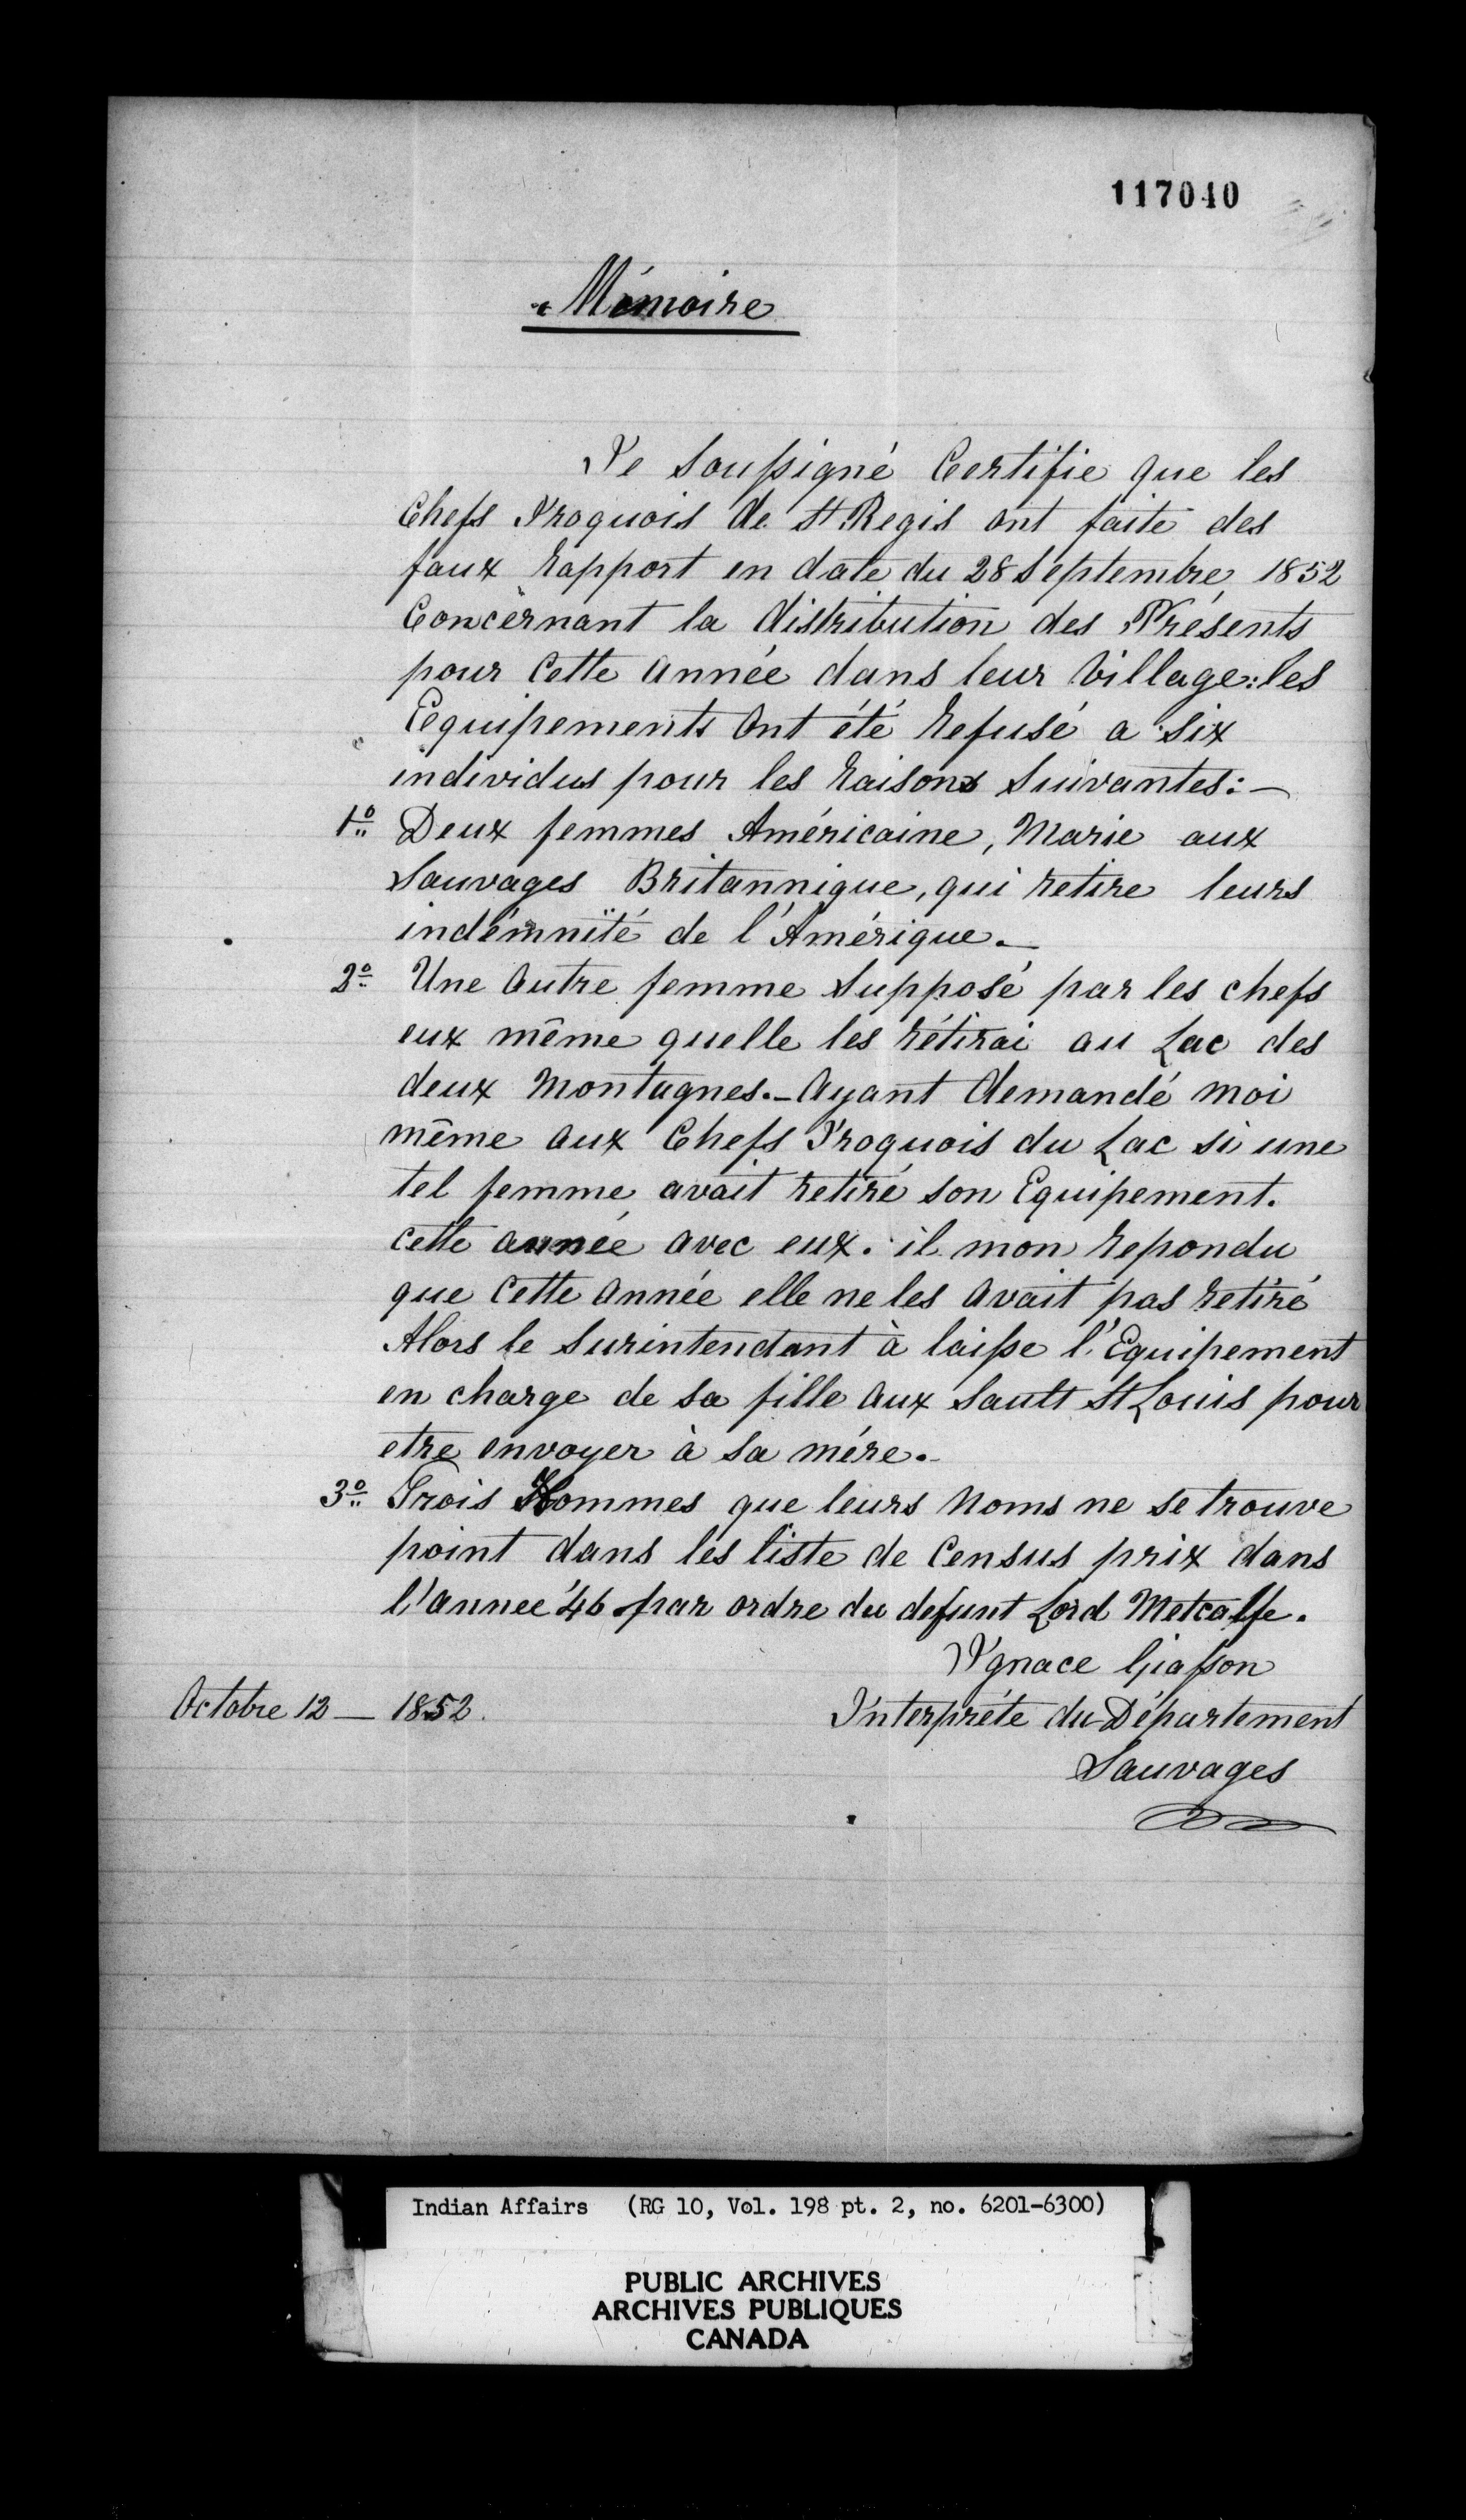 117040
Mémoire
Je Soussigné Certifie que les
Chefs Iroquois de St Regis ont faite des
faux Rapport en date du 28 Septembre 1852
Concèrnant la distribution des Présents
pour Cette année dans leur Village: les
Eequipements Ont été Refusé a Six
individus pour les Raisons Suivantes:—
1o Deux femmes Américaine, Marie aux
Sauvages Britannique, qui retire leurs
indémnité de l'Amérique.—
2o Une Autre femme Supposé par les chefs
eux même quelle les rétirai au Lac des
deux Montagnes.- Ayant demandé moi
même aux Chefs Iroquois du Lac si une
tel femme avait retiré son Equipement.
cette année avec eux. il mon Repondu
que Cette Année elle ne les avait pas Retiré
Alors le Surintendant à laisse l'Equipement
en charge de sa fille aux Sault St Louis pour
etre envoyer à sa mére.-
3o Trois Hommes que leurs Noms ne se trouve
point dans les liste de Census prix dans
l'annee '46 par ordre du defunt Lord Metcalfe.
Ignace Giasson
Octobre 12 — 1852. Interpréte du Département
Sauvages
Indian Affairs (RG 10, Vol. 198 pt. 2, no. 6201-6300)
PUBLIC ARCHIVES
ARCHIVES PUBLIQUES
CANADA